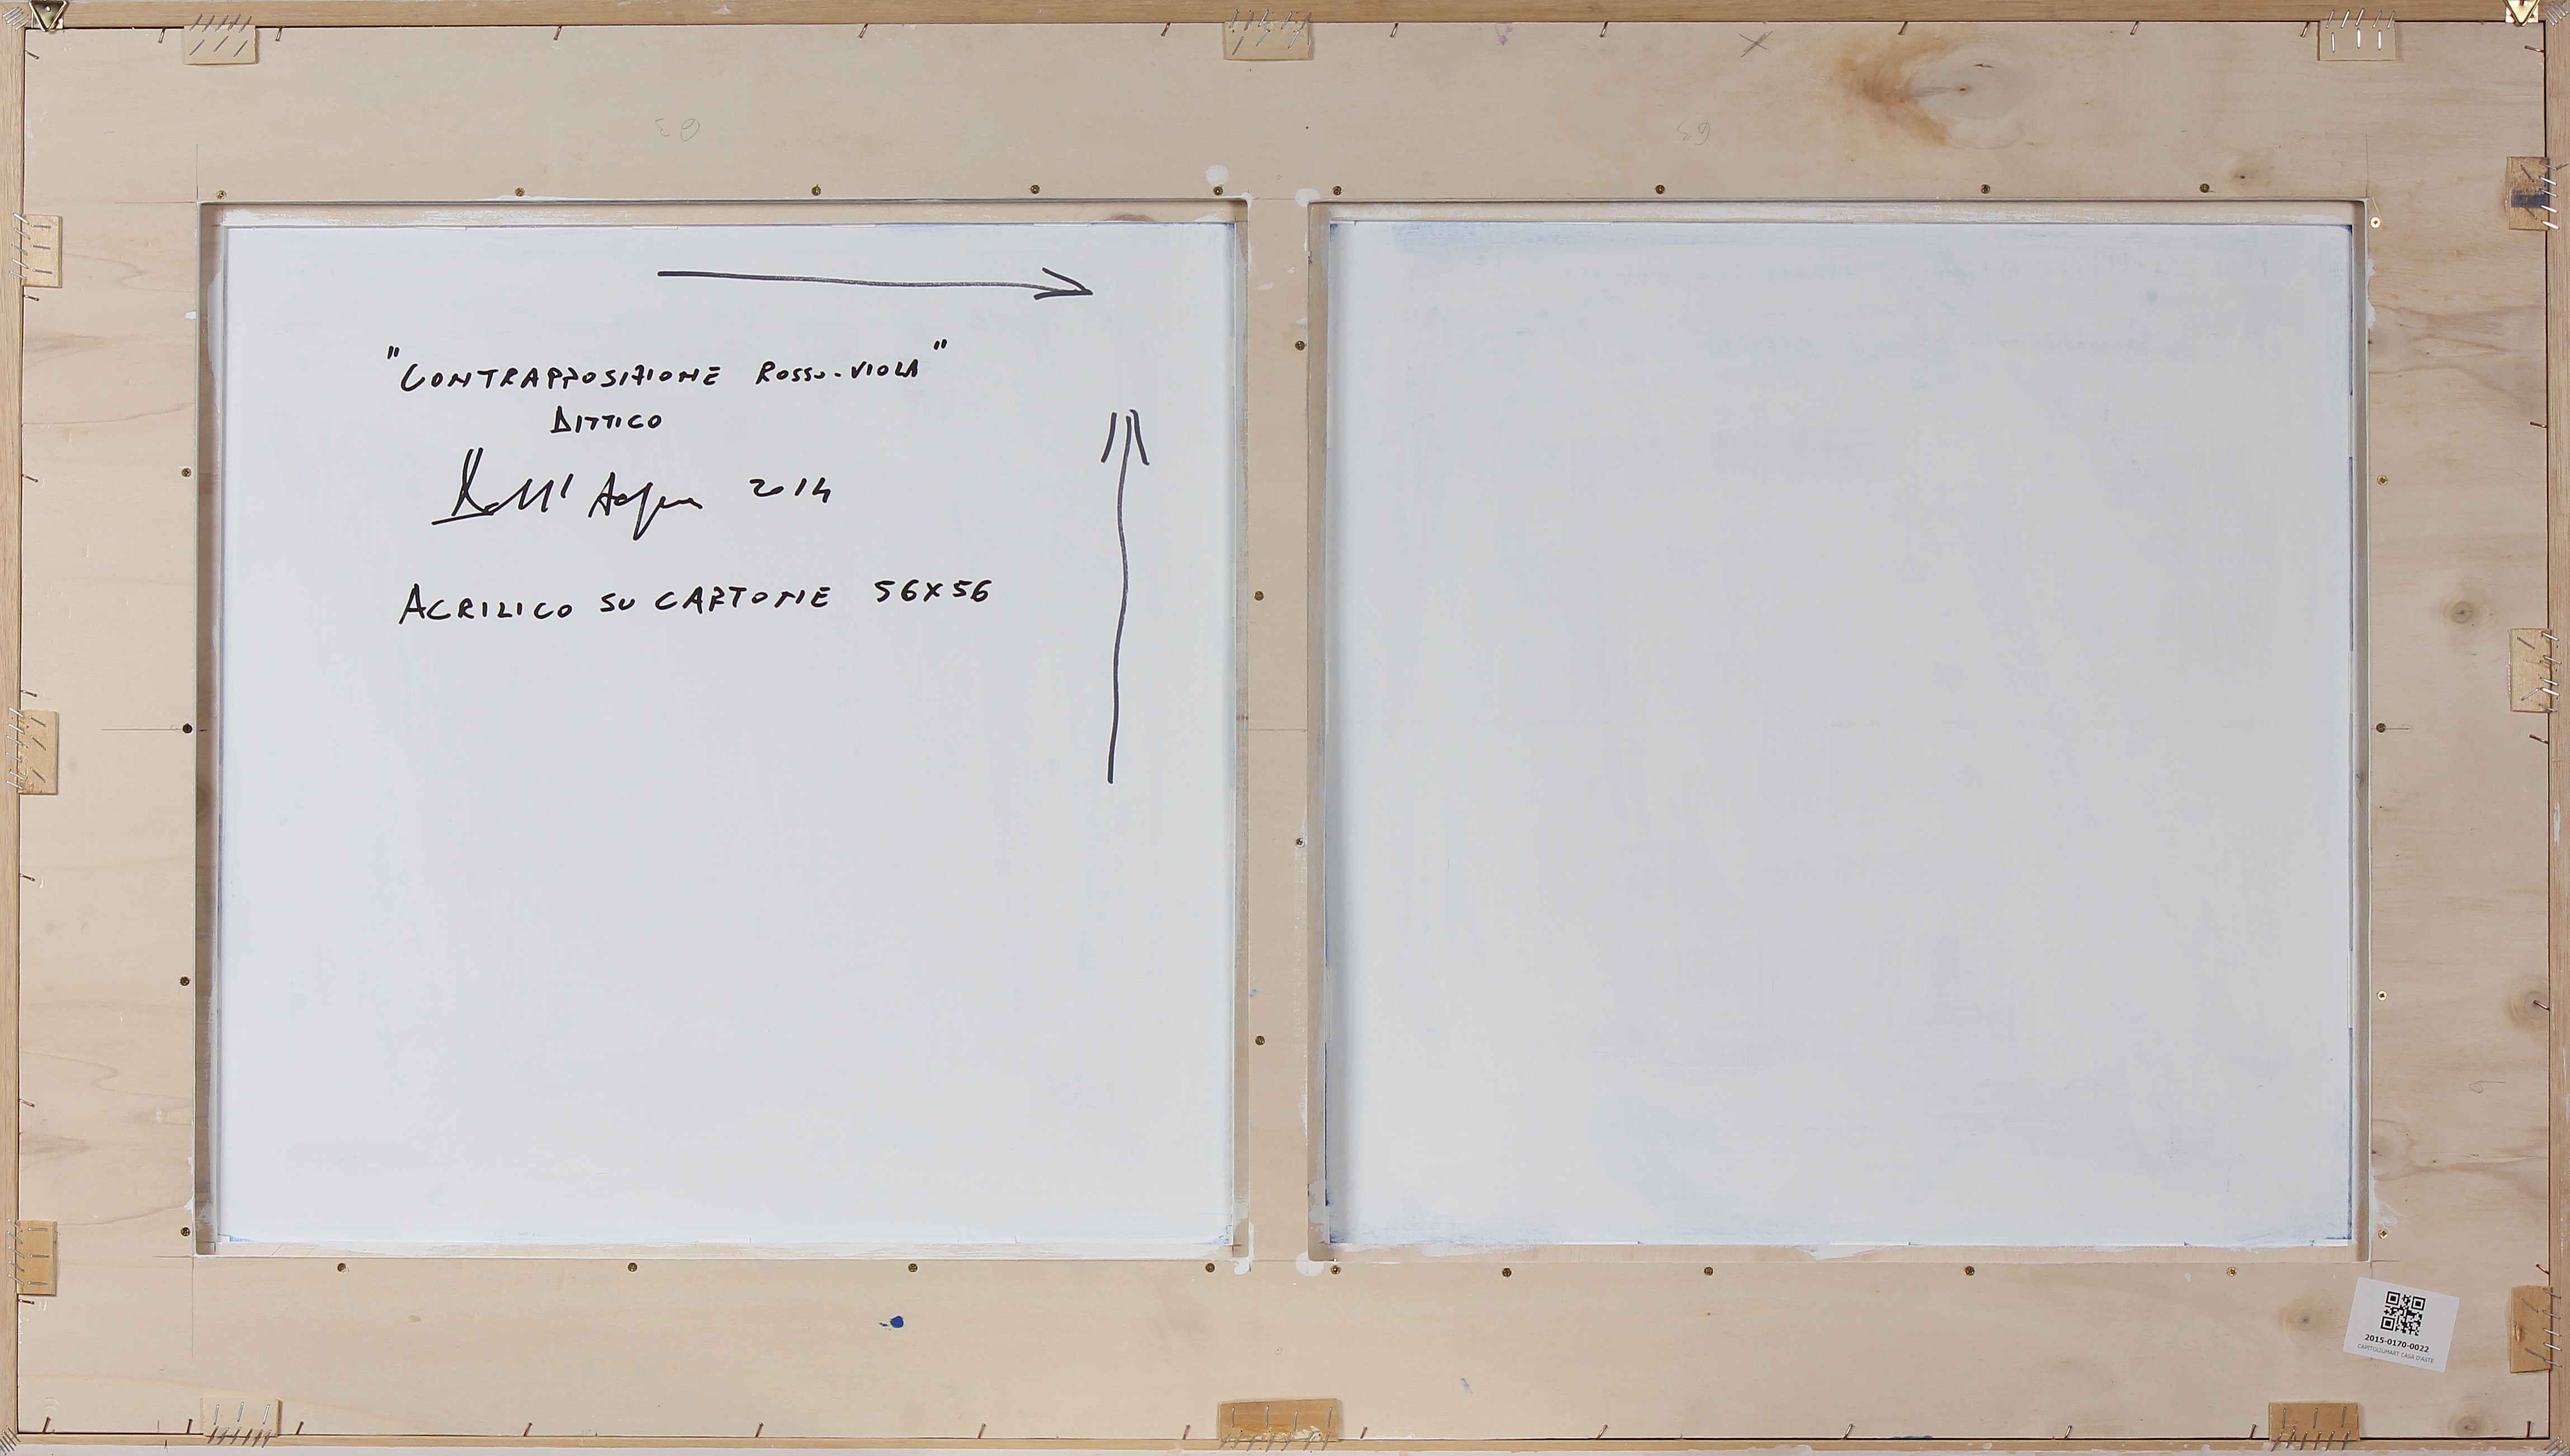 "CONTRAPPOSIZIONE ROSSO-VIOLA"
DITTICO
Dell'Acqua 2014
ACRILICO SU CARTONE 56X56
63
63
2015-0170-0022
CAPITOLIUMART CASA D'ASTE